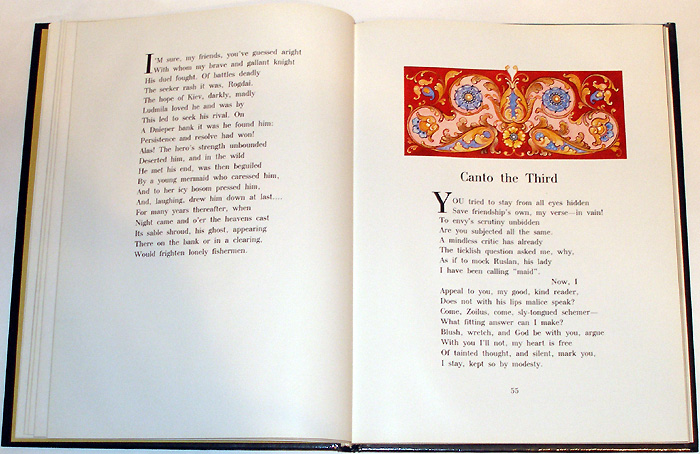 I'M sure, my friends, you've guessed aright
With whom my brave and gallant knight
His duel fought. Of battles deadly
The seeker rash it was, Rogdai.
The hope of Kiev, darkly, madly
Ludmila loved he and was by
This led to seek his rival. On
A Dnieper bank it was he found him:
Persistence and resolve had won!
Alas! The hero's strength unbounded
Deserted him, and in the wild
He met his end, was then beguiled
By a young mermaid who caressed him,
And to her icy bosom pressed him,
And, laughing, drew him down at last....
For many years thereafter, when
Night came and o'er the heavens cast
Its sable shroud, his ghost, appearing
There on the bank or in a clearing,
Would frighten lonely fishermen.
Canto the Third
YOU tried to stay from all eyes hidden
Save friendship's own, my verse—in vain!
To envy's scrutiny unbidden
Are you subjected all the same.
A mindless critic has already
The ticklish question asked me, why,
As if to mock Ruslan, his lady
I have been calling "maid".
Now, I
Appeal to you, my good, kind reader,
Does not with his lips malice speak?
Come, Zoilus, come, sly-tongued schemer—
What fitting answer can I make?
Blush, wretch, and God be with you, argue
With you I'll not, my heart is free
Of tainted thought, and silent, mark you,
I stay, kept so by modesty.
55